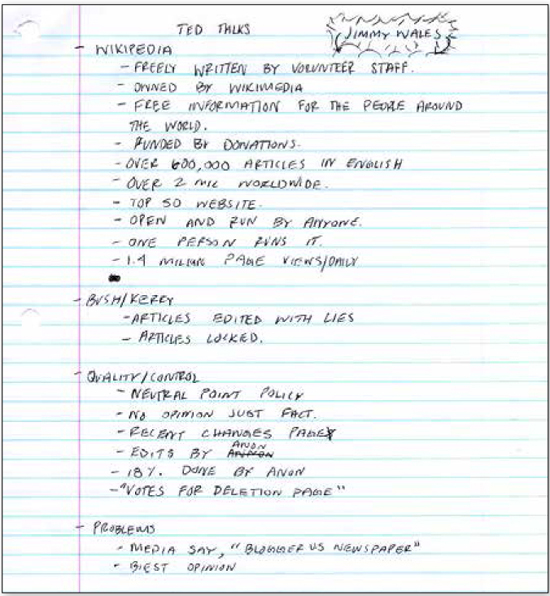 TED TALKS
JIMMY WALES
- WIKIPEDIA
- FREELY WRITTEN BY VOLUNTEER STAFF.
- OWNED BY WIKIMEDIA
- FREE INFORMATION FOR THE PEOPLE AROUND
THE WORLD.
- FUNDED BY DONATIONS.
- OVER 600,000 ARTICLES IN ENGLISH
- OVER 2 MIL WORLDWIDE.
- TOP 50 WEBSITE.
- OPEN AND RUN BY ANYONE.
- ONE PERSON RUNS IT.
- 1.4 MILLION PAGE VIEWS/DAILY
- BUSH/KERRY
- ARTICLES EDITED WITH LIES
- ARTICLES LOCKED.
- QUALITY/CONTROL
- NEUTRAL POINT POLICY
- NO OPINION JUST FACT.
- RECENT CHANGES PAGE
- EDITS BY ANON
- 18% DONE BY ANON
- "VOTES FOR DELETION PAGE"
- PROBLEMS
- MEDIA SAY, "BLOGGER VS NEWSPAPER"
- BIEST OPINION